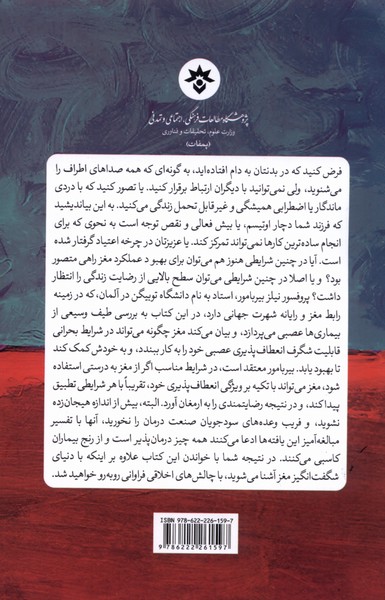 پژوهشگاه مطالعات فرهنگی، اجتماعی و تمدنی
وزارت علوم، تحقیقات و فناوری
(پمفات)
فرض کنید که در بدنتان به دام افتاده‌اید، به گونه‌ای که همه صداهای اطراف را
می‌شنوید، ولی نمی‌توانید با دیگران ارتباط برقرار کنید. یا تصور کنید که با دردی
ماندگار یا اضطرابی همیشگی و غیرقابل تحمل زندگی می‌کنید. به این بیاندیشید
که فرزند شما دچار اوتیسم، یا بیش فعالی و نقص توجه است به نحوی که برای
انجام ساده‌ترین کارها نمی‌تواند تمرکز کند. یا عزیزتان در چرخه اعتیاد گرفتار شده
است. آیا در چنین شرایطی هنوز هم می‌توان برای بهبود عملکرد مغز راهی متصور
بود؟ و یا اصلا در چنین شرایطی می‌توان سطح بالایی از رضایت زندگی را انتظار
داشت؟ پروفسور نیلز بیربامور، استاد به نام دانشگاه توبینگن در آلمان، که در زمینه
رابط مغز و رایانه شهرت جهانی دارد، در این کتاب به بررسی طیف وسیعی از
بیماری‌ها عصبی می‌پردازد، و بیان می‌کند مغز چگونه می‌تواند در شرایط بحرانی
قابلیت شگرف انعطاف‌پذیری عصبی خود را به کار ببندد، و به خودش کمک کند
تا بهبود یابد. بیربامور معتقد است، در شرایط مناسب اگر از مغز به درستی استفاده
شود، مغز می‌تواند با تکیه بر ویژگی انعطاف‌پذیری خود، تقریباً با هر شرایطی تطبیق
پیدا کند، و در نتیجه رضایتمندی را به ارمغان آورد. البته، بیش از اندازه هیجان‌زده
نشوید، و فریب وعده‌های سودجویان صنعت درمان را نخورید، آنها با تفسیر
مبالغه‌آمیز این یافته‌ها ادعا می‌کنند همه چیز درمان‌پذیر است و از رنج بیماران
کاسبی می‌کنند. در نتیجه شما با خواندن این کتاب علاوه بر اینکه با دنیای
شگفت‌انگیز مغز آشنا می‌شوید، با چالش‌های اخلاقی فراوانی روبه‌رو خواهید شد.
ISBN 978-622-226-159-7
9786222261597